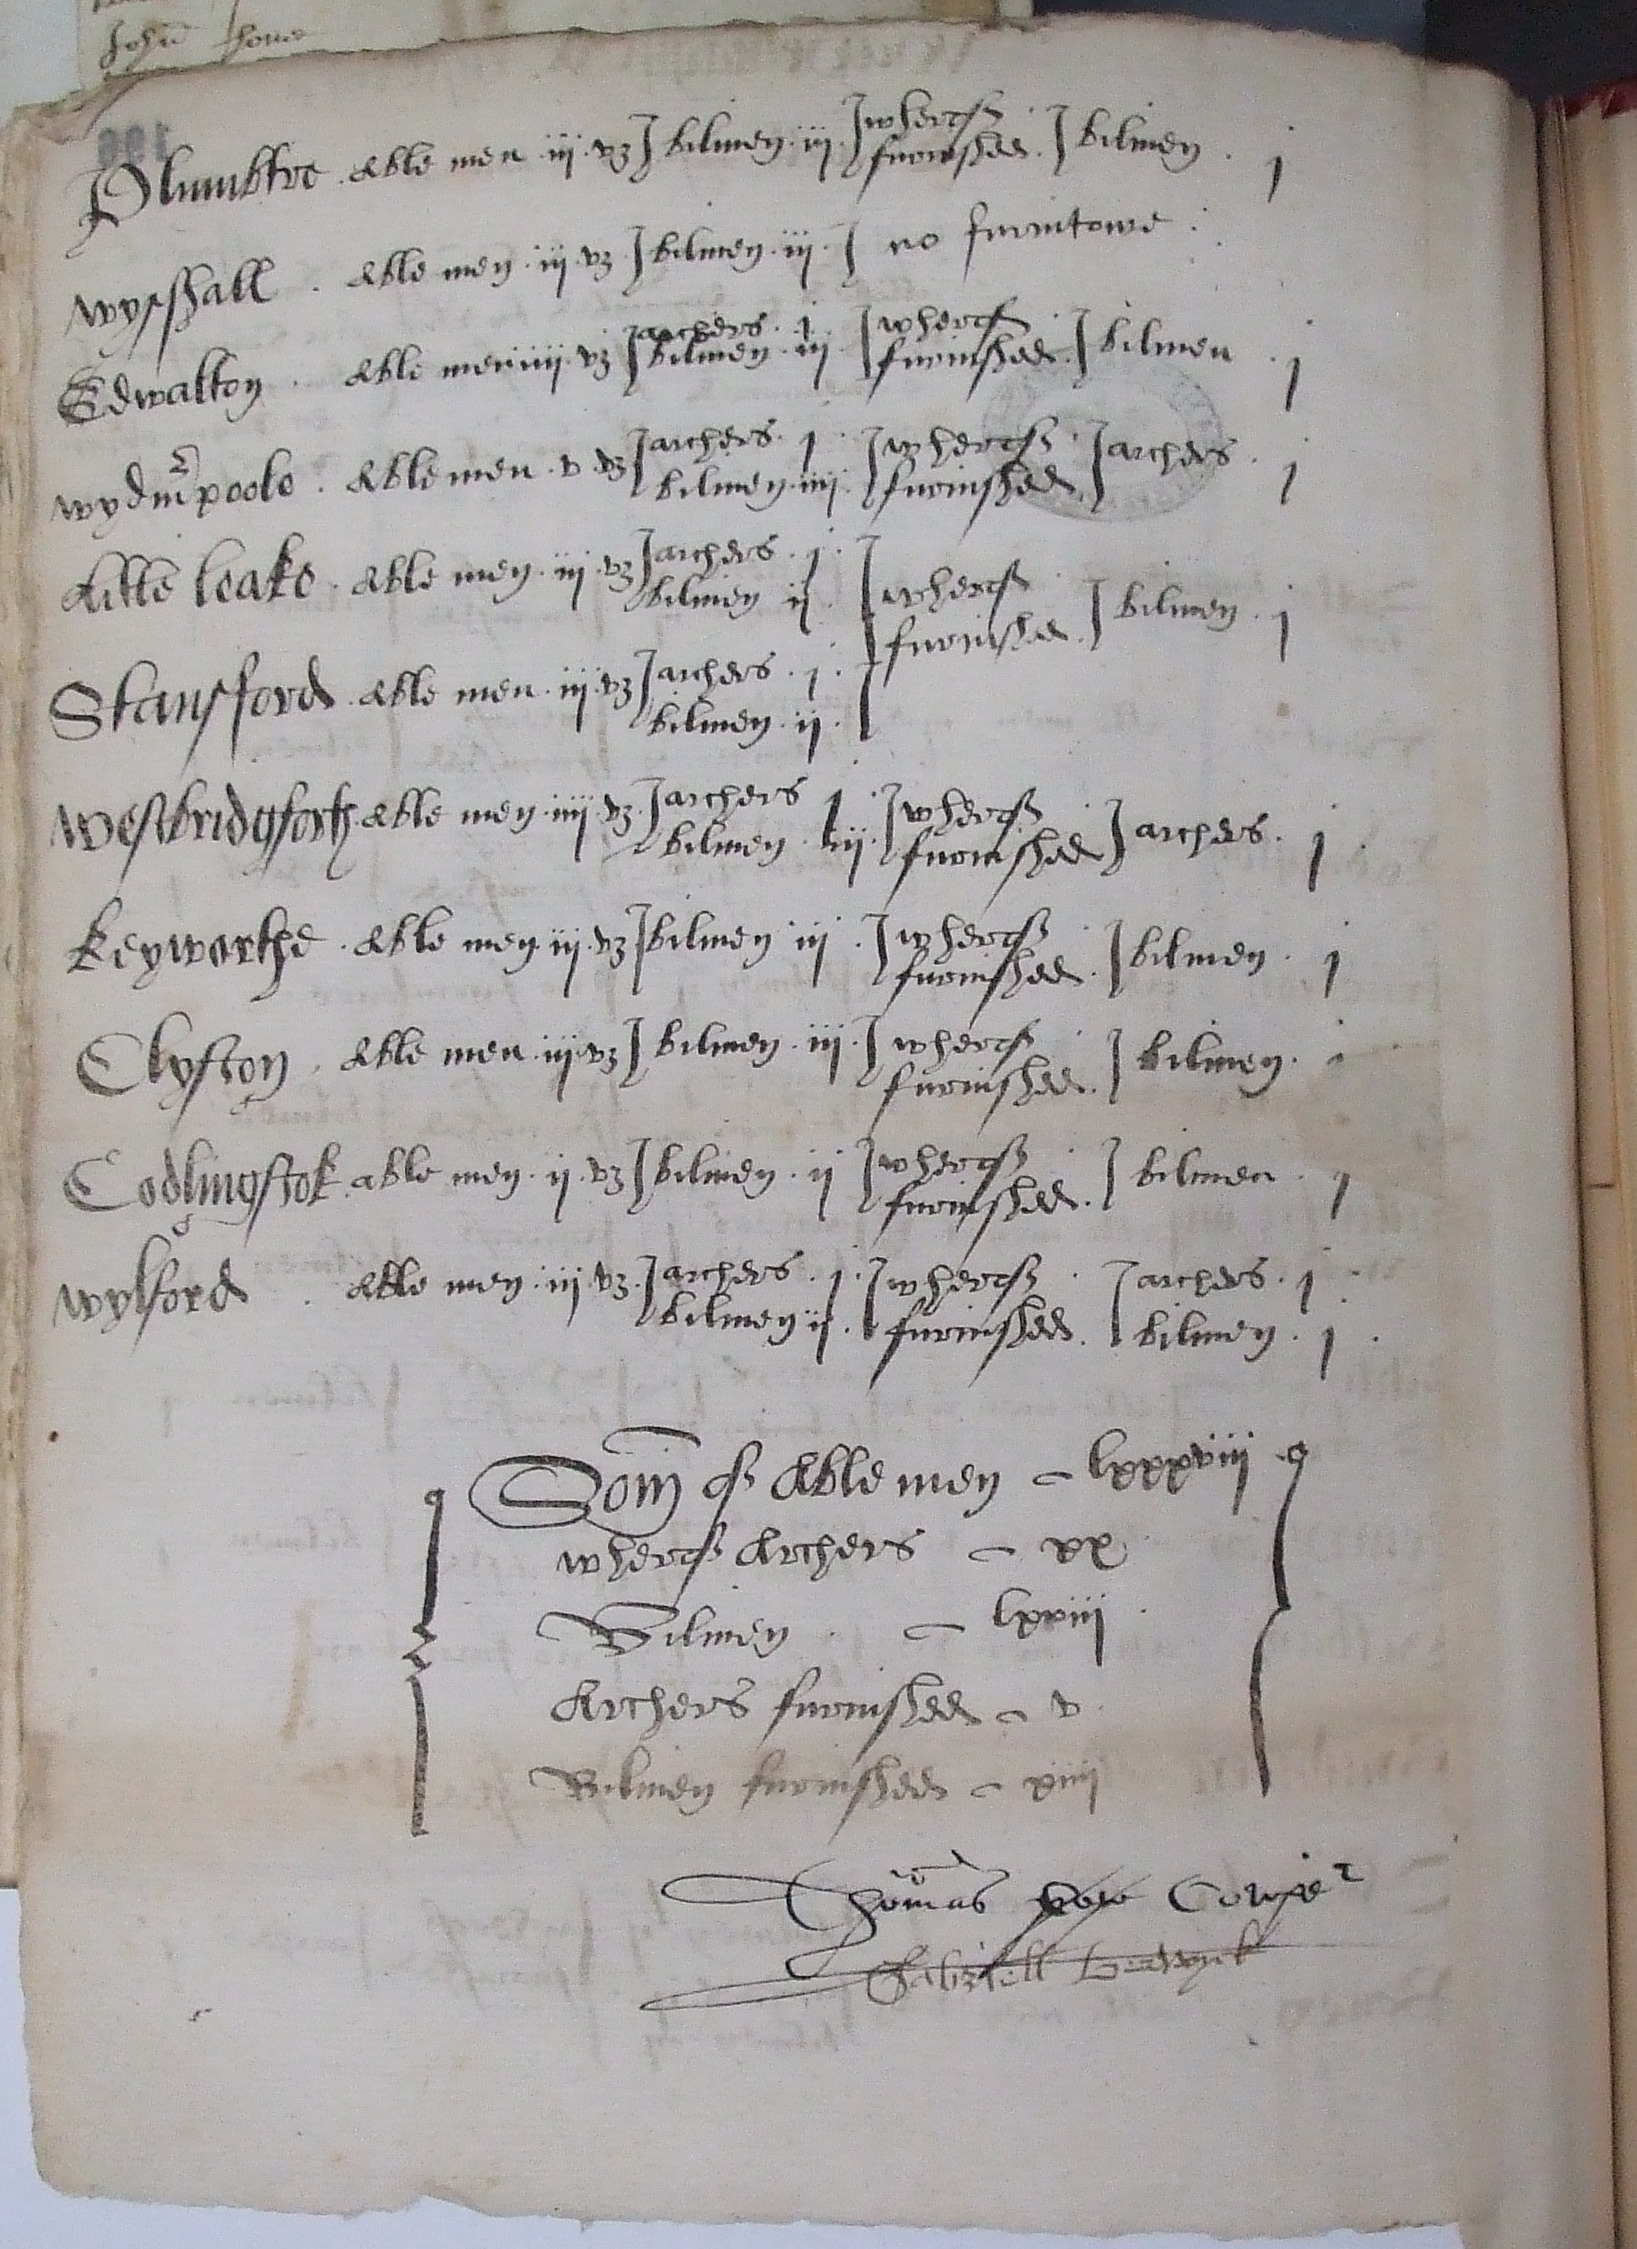 John
Plumbtre . able men . iij . vz ] bilmen . iij . ] wherof furnished . ] bilmen . j
Wysshall . able men . iij . vz . ] bilmen . iij . ] no furnitowre .
Edwalton . able men iiij . vz ] archers . j . bilmen . iij . ] wherof furnished . ] bilmen . j
Wydm̄poole . able men . v . vz ] archers . j . bilmen . iiij . ] wherof furnished . ] archers . j
Litle leake . able men . iij . vz ] archers . j . bilmen ij . ] wherof furnished . ] bilmen . j
Stansford . able men . iij . vz ] archers . j . bilmen . ij . ]
Westbridgforth . able men . iiij . vz . ] archers j . bilmen . iij . ] wherof furnished ] archers . j .
Keyworthe . able men . iij . vz ] bilmen iij . ] wherof furnished . ] bilmen . j
Clyfton . able men . iij . vz ] bilmen . iij . ] wherof furnished . ] bilmen . j
Codlingstok . able men . ij . vz ] bilmen . ij ] wherof furnished . ] bilmen . j
Wylford . able men . iij . vz . ] archers . j . bilmen ij . ] wherof furnished . ] archers . j . bilmen . j .
Som̄ of Able men – lxxxviij
wherof Archers – xx
Bilmen . – lxviij .
Archers furnished – v .
Bilmen furnished – xiiij
Thomas
Gabriell